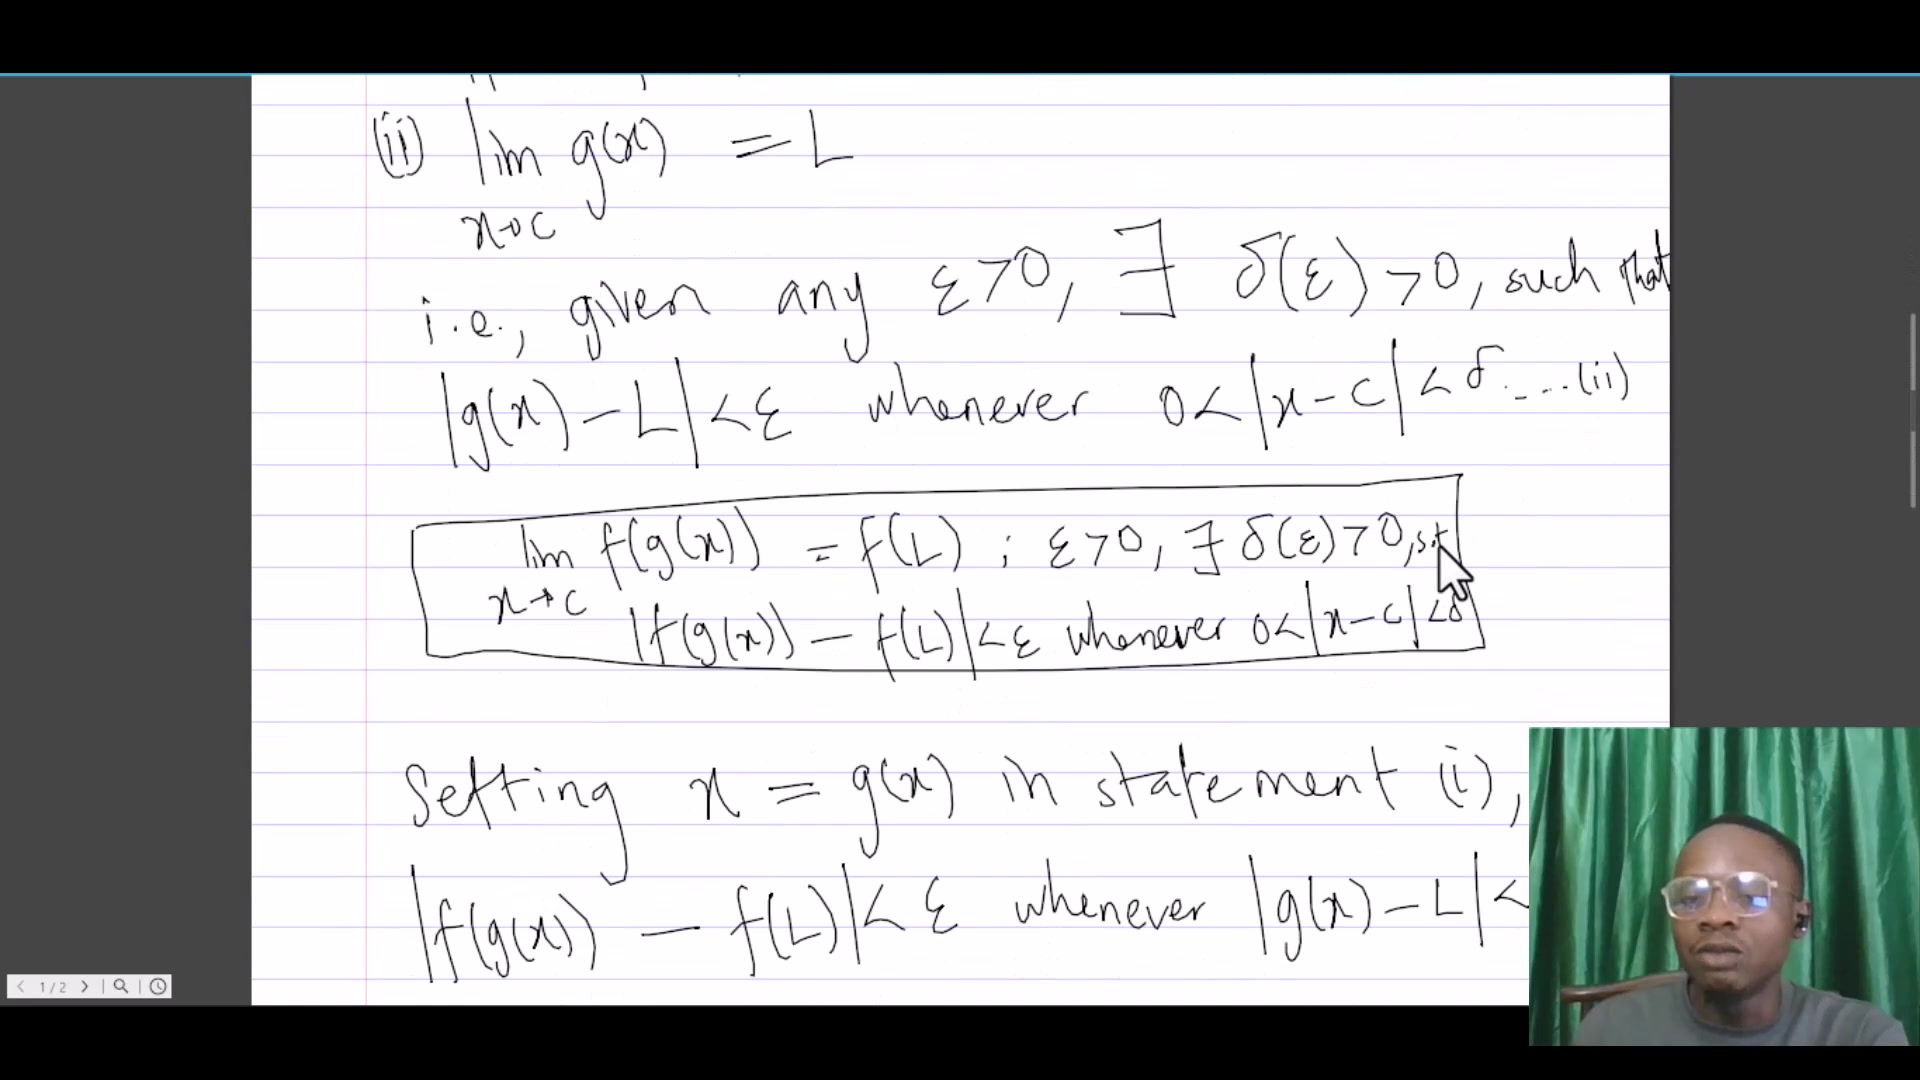 (ii) lim g(x) = L
x→c
i.e., given any ε>0, ∃ δ(ε) >0, such that
|g(x) – L| < ε whenever 0<|x–c| < δ. ... (ii)
lim f(g(x)) = f(L) ; ε>0, ∃ δ(ε)>0, s.t
x→c
|f(g(x)) – f(L)| < ε whenever 0<|x–c| <δ
Setting x = g(x) in statement (i),
|f(g(x)) – f(L)| < ε whenever |g(x) – L| <
1/2